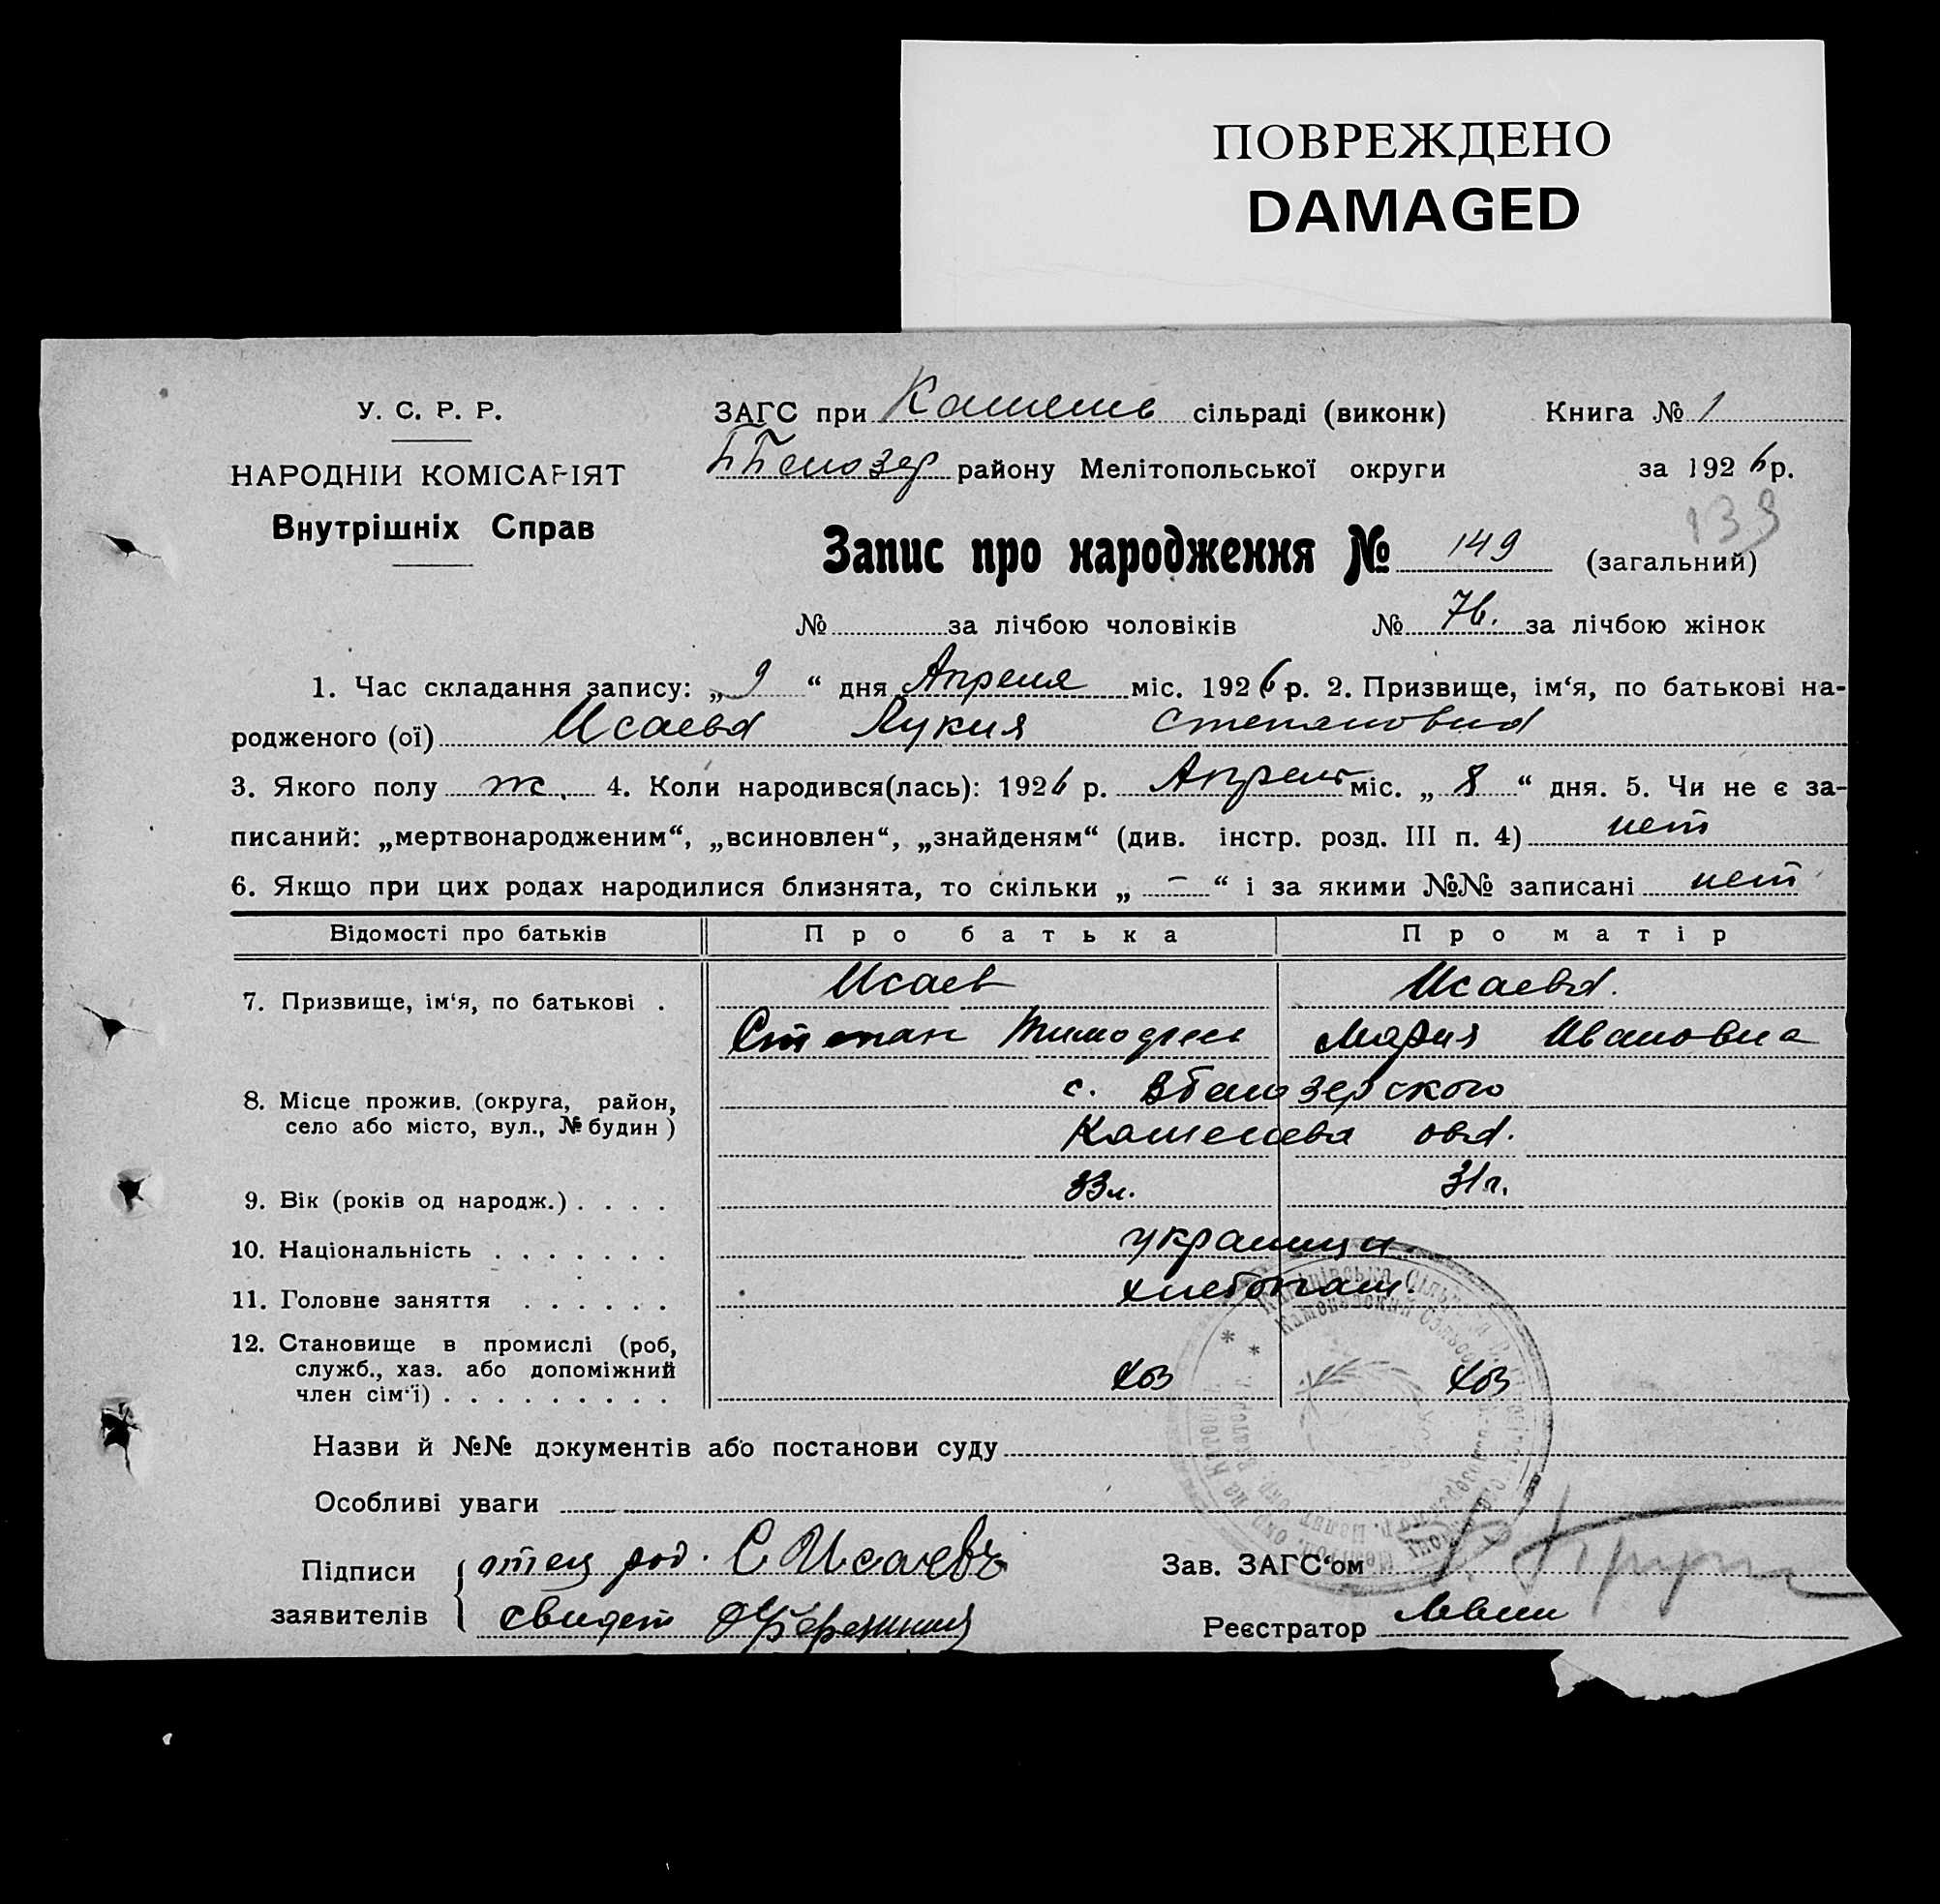 ПОВРЕЖДЕНО
DAMAGED
У. С. Р. Р.
НАРОДНІЙ КОМІСАРІЯТ
Внутрішніх Справ
ЗАГС при Камянь сільраді (виконк) Книга № 1
району Мелітопольської округи за 1926 р.
133
Запис про народження № 149 (загальний)
№ за лічбою чоловіків № 76. за лічбою жінок
1. Час складання запису: „ 9 “ дня Апреля міс. 1926 р. 2. Призвище, ім‘я, по батькові на-
родженого (ої) Исаева Лукия Степановна
3. Якого полу ж. 4. Коли народився(лась): 1926 р. Апреля міс. „ 8 “ дня. 5. Чи не є за-
писаний: „мертвонародженим“, „всиновлен“, „знайденям“ (див. інстр. розд. III п. 4) нет
6. Якщо при цих родах народилися близнята, то скільки „ – “ і за якими №№ записані нет
Відомості про батьків Про батька Про матір
7. Призвище, ім‘я, по батькові . Исаев Исаева.
Степан Тимофеев Мария Ивановна
8. Місце прожив. (округа, район, с. Вбелозерского
село або місто, вул., № будин)
9. Вік (років од народж.) . . . . 33 л. 31 г.
10. Національність . . . . . . . украинцы
11. Головне заняття . . . . . . хлебопаш.
12. Становище в промислі (роб,
служб., хаз. або допоміжний
член сім‘ї) . . . . . . . . . хоз хоз
Назви й №№ документів або постанови суду
Особливі уваги
Підписи отец род. С Исаевъ Зав. ЗАГС‘ом
заявителів свидет Реєстратор